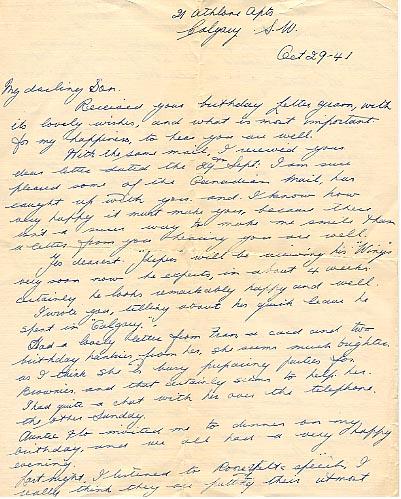 21 Athlone Apts
Calgary S.W.
Oct 29-41
My darling Son.
Received your birthday letter gram, with
its lovely wishes, and what is most important
for my happiness, to hear you are well.
With the same mail, I received your
dear letter dated the Sept. I am sure
pleased some of the Canadian Mail, has
caught up with you. and I know how
very happy it must make you, because there
isn't a surer way to make me smile than
a letter from you & hearing you are well.
Yes dearest will be receiving his "Wings"
very soon now he expects, in about 4 weeks
certainly he looks remarkably happy and well.
I wrote you, telling about his quick leave he
spent in "Calgary."
Had a lovely letter from Fran, a card and two
birthday hankies from her, she seems much brighter.
as I think she is busy preparing parties for
Brownies, and that certainly seems to help her.
I had quite a chat with her over the telephone.
the other Sunday.
Auntie Flo invited me to dinner on my
birthday, and we all had a very happy
evening.
Last night, I listened to speech, I
really think they are putting their utmost